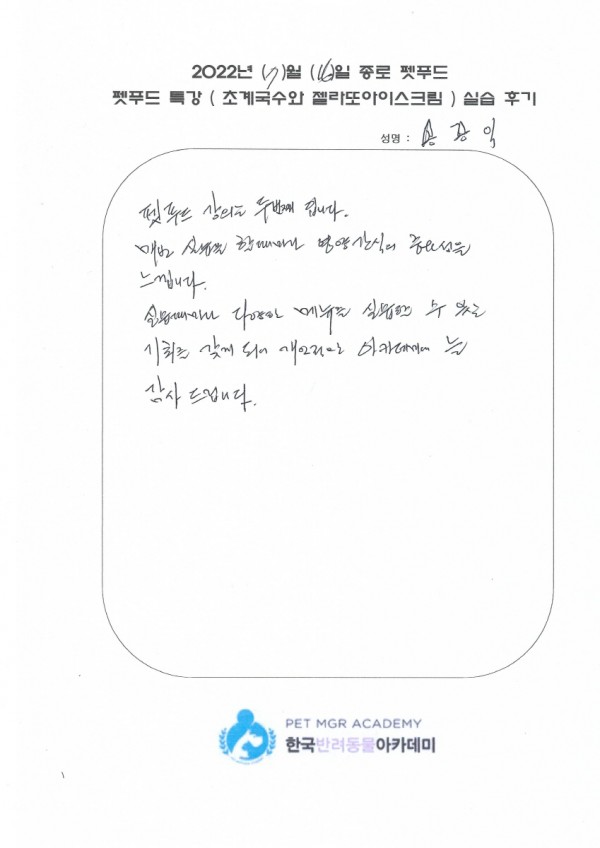 2022년 (7)월 (16)일 종로 펫푸드
펫푸드 특강 ( 초계국수와 젤라또아이스크림 ) 실습 후기
성명 :
펫푸드 강의는 두번째 입니다.
매번 실습을 할때마다 영양간식의 중요성을
느낍니다.
실습때마다 다양한 메뉴를 실습할 수 있는
기회를 갖게 되어 개인적으로 아카데미에 늘
감사 드립니다.
PET MGR ACADEMY
한국반려동물아카데미